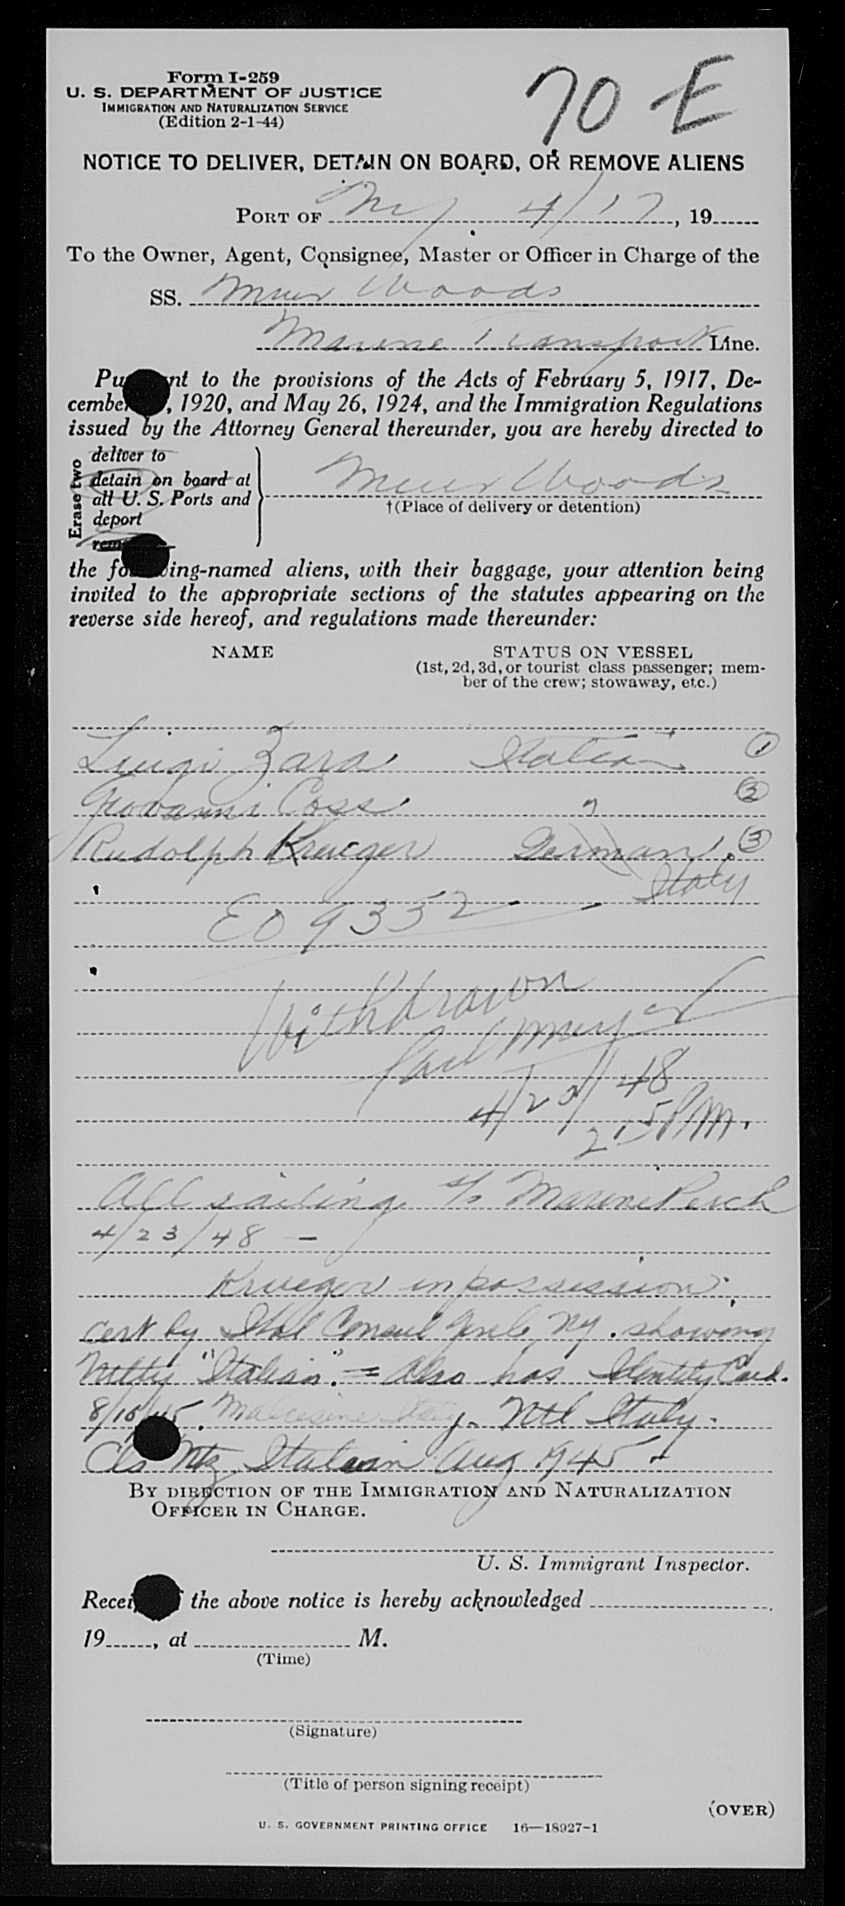 Form I-259
U. S. DEPARTMENT OF JUSTICE
IMMIGRATION AND NATURALIZATION SERVICE
(Edition 2-1-44)
70 E
NOTICE TO DELIVER, DETAIN ON BOARD, OR REMOVE ALIENS
PORT OF NY 4/17, 19
To the Owner, Agent, Consignee, Master or Officer in Charge of the
SS. Muir Woods
Marine Transport Line.
Pu nt to the provisions of the Acts of February 5, 1917, De-
cember , 1920, and May 26, 1924, and the Immigration Regulations
issued by the Attorney General thereunder, you are hereby directed to
Erase two
deliver to
detain on board at
all U. S. Ports and
deport
rem
Muir Woods
†(Place of delivery or detention)
the fo ing-named aliens, with their baggage, your attention being
invited to the appropriate sections of the statutes appearing on the
reverse side hereof, and regulations made thereunder:
NAME
STATUS ON VESSEL
(1st, 2d, 3d, or tourist class passenger; mem-
ber of the crew; stowaway, etc.)
Luigi Zara Italian 1
Giovanni Coss " 2
Rudolph Krueger German 3
Italy
EO 9352
Withdrawn
Carl
4/23/48
2:15 PM.
All sailing s/s Marine Perch
4/23/48 —
Krueger in possession
cert by Ital Consul Genl NY. showing
Ntlty "Italian". = Also has Identity Card.
8/10/45. Malcesine Italy. Ntl Italy.
Italian Aug 1945
BY DIRECTION OF THE IMMIGRATION AND NATURALIZATION
OFFICER IN CHARGE.
U. S. Immigrant Inspector.
Recei the above notice is hereby acknowledged
19 , at M.
(Time)
(Signature)
(Title of person signing receipt)
(OVER)
U. S. GOVERNMENT PRINTING OFFICE 16—18927-1